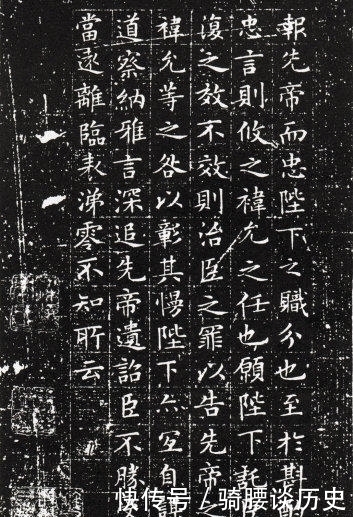 報先帝而忠陛下之職分也至於斟
忠言則攸之禕允之任也願陛下託
復之效不效則治臣之罪以告先帝之
禕允等之咎以彰其慢陛下亦宜自謀
道察納雅言深追先帝遺詔臣不勝
當遠離臨表涕零不知所云
快传号/骑腰谈历史